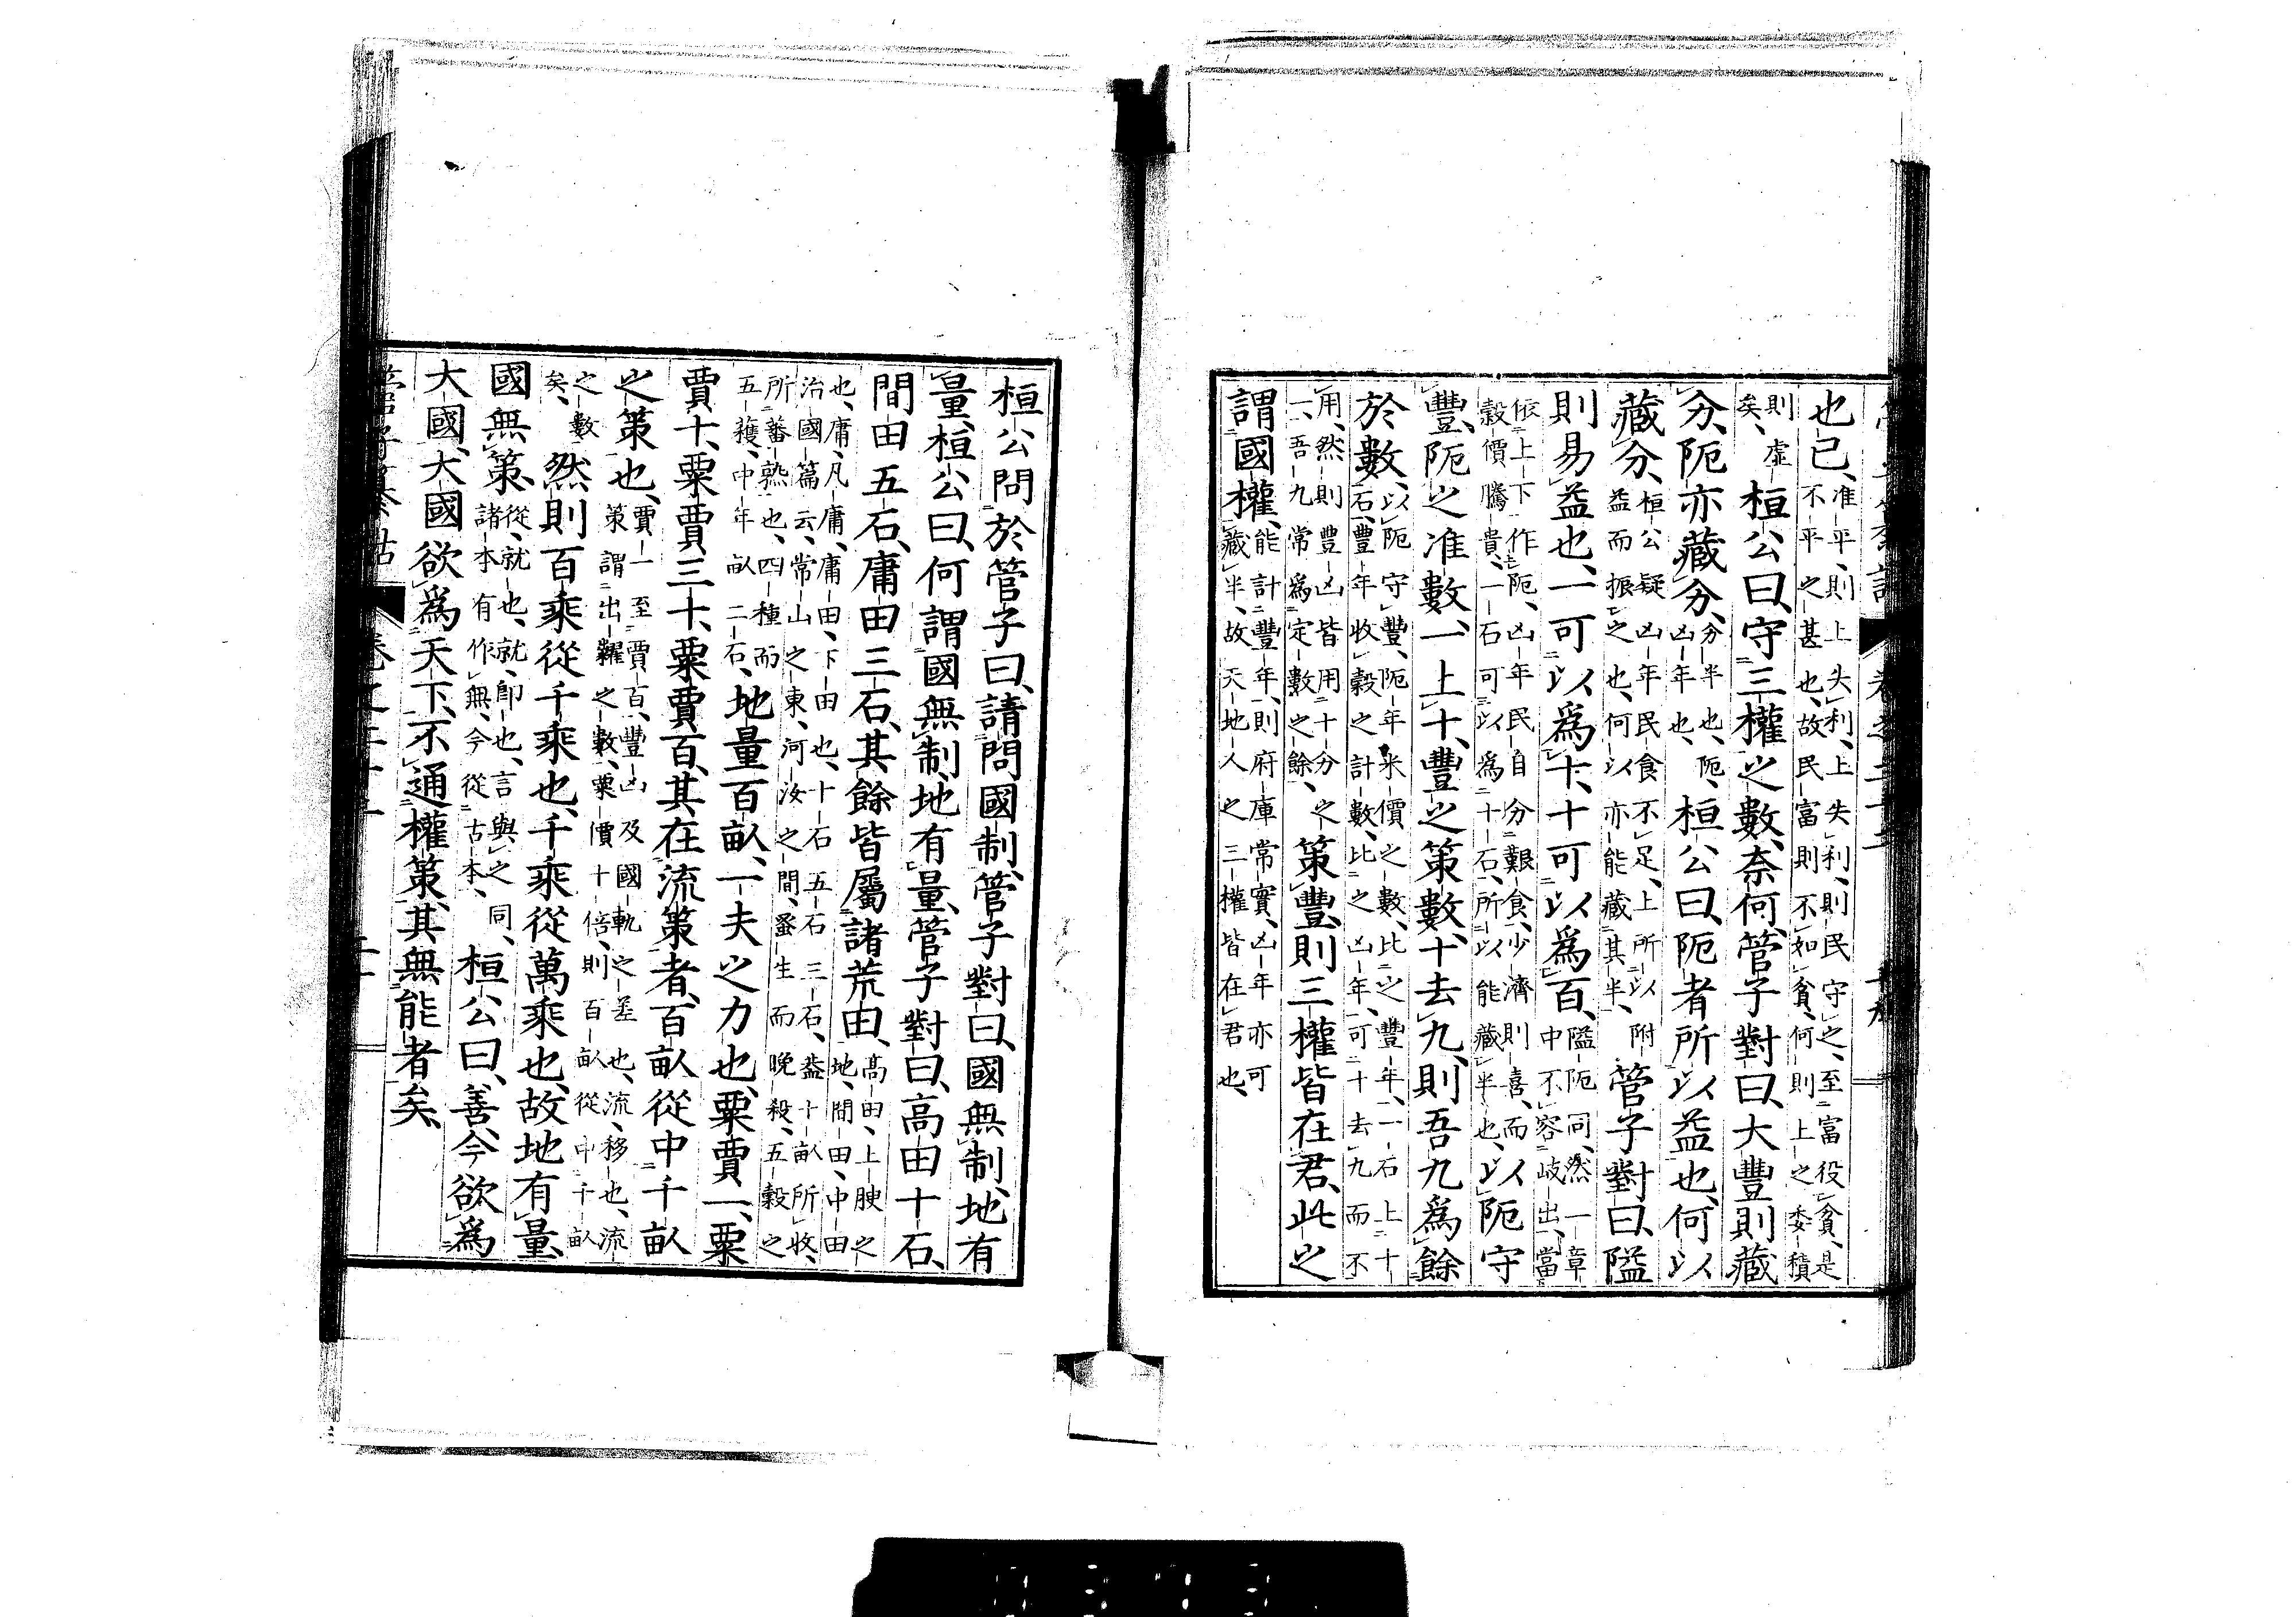 也已、准平、則上失利、上失利、則民守之、至富役貧、是不平之甚也、故民富則不如貧、何則上之委積
則虛矣、桓公曰、守三權之數、奈何、管子對曰、大豐則藏
分、阨亦藏分、分半也、阨、凶年也、桓公曰、阨者所以益也、何以
藏分、桓公疑凶年民食不足、上所以附益而振之也、何以亦能藏其半、管子對曰、隘
則易益也、一可以爲十、十可以爲百、隘阨同、然一章中不容岐出、當
依上下作阨、凶年民自分艱食、少濟則喜、而穀價騰貴、一石可以爲十石、所以能藏半也、以阨守
豐、阨之准數、一上十、豐之策數、十去九、則吾九爲餘
於數、以阨守豐、阨年米價之數、比之豐年、一石上十石、豐年收穀之計數、比之凶年、可十去九而不
用、然則豐凶皆用十分之一、吾九常爲定數之餘、策豐、則三權皆在君、此之
謂國權、能計豐年、則府庫常實、凶年亦可藏半、故天地人之三權皆在君也、
桓公問於管子曰、請問國制、管子對曰、國無制、地有
量、桓公曰、何謂國無制、地有量、管子對曰、高田十石、
間田五石、庸田三石、其餘皆屬諸荒田、高田、上腴之地、間田、中田
也、庸、凡庸、庸田、下田也、十石五石三石、蓋十畝所收、治國篇云、常山之東、河汝之間、蚤生而晚殺、五穀之
所蕃熟也、四種而五穫、中年畝二石、地量百畝、一夫之力也、粟賈一、粟
賈十、粟賈三十、粟賈百、其在流策者、百畝從中千畝
之策也、賈一至賈百、豐凶及國軌之差也、流、移也、流策謂出糶之數、粟價十倍、則百畝從中千畝
之數矣、然則百乘從千乘也、千乘從萬乘也、故地有量、
國無策、從、就也、就、卽也、言與之同、諸本有作無、今從古本、桓公曰、善、今欲爲
大國、大國欲爲天下、不通權策、其無能者矣、